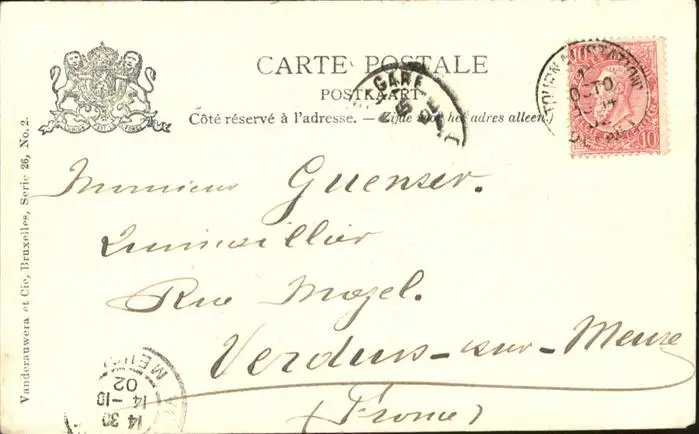 CARTE POSTALE
POSTKAART
Côté réservé à l'adresse. — Zijde voor het adres alleen
GARE
TOURNAI (STATION)
10 10
Monsieur Guenser.
Quincaillier
Rue Mazel.
Verdun-sur-Meuse
(France)
Vanderauwera et Cie, Bruxelles, Serie 26, No. 2.
14 30
14 -10
02
MEUSE